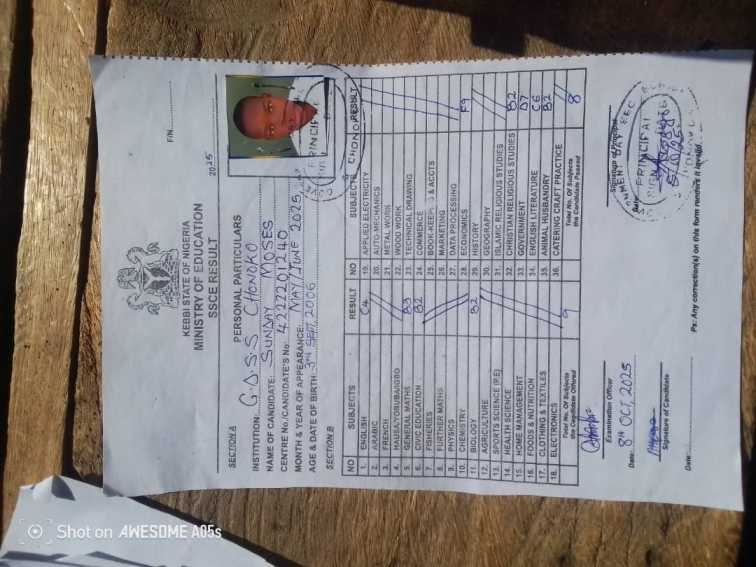 KEBBI STATE OF NIGERIA
MINISTRY OF EDUCATION
SSCE RESULT
F/N
2025
SECTION A
PERSONAL PARTICULARS
INSTITUTION: G.D.S.S CHONOKO
NAME OF CANDIDATE: SUNDAY MOSES
CENTRE No./CANDIDATE'S No: 4222201240
MONTH & YEAR OF APPEARANCE: MAY/JUNE 2025
AGE & DATE OF BIRTH: 3RD SEPT, 2006
SECTION B
NO SUBJECTS RESULT NO SUBJECTS RESULT
1. ENGLISH C4 19. APPLIED ELECTRICITY
2. ARABIC 20. AUTO-MECHANICS
3. FRENCH 21. METAL WORK
4. HAUSA/YORUBA/IGBO 22. WOOD WORK
5. GENERAL MATHS B3 23. TECHNICAL DRAWING
6. CIVIC EDUCATION B2 24. COMMERCE
7. FISHERIES 25. BOOK-KEEPING & ACCTS
8. FURTHER MATHS 26. MARKETING
9. PHYSICS 27. DATA PROCESSING
10. CHEMISTRY 28. ECONOMICS F9
11. BIOLOGY B2 29. HISTORY
12. AGRICULTURE 30. GEOGRAPHY
13. SPORTS SCIENCE (P.E) 31. ISLAMIC RELIGIOUS STUDIES
14. HEALTH SCIENCE 32. CHRISTIAN RELIGIOUS STUDIES B2
15. HOME MANAGEMENT 33. GOVERNMENT D7
16. FOODS & NUTRITION 34. ENGLISH LITERATURE C6
17. CLOTHING & TEXTILES 35. ANIMAL HUSBANDRY B2
18. ELECTRONICS 36. CATERING CRAFT PRACTICE
Total No. Of Subjects the Candidate Offered 9 Total No. Of Subjects the Candidate Passed 8
Examination Officer
Signature of Principal
Date: 8TH OCT, 2025
Date:
PRINCIPAL
Signature of Candidate
Date:
Ps: Any correction(s) on this form renders it invalid
Shot on AWESOME A05s